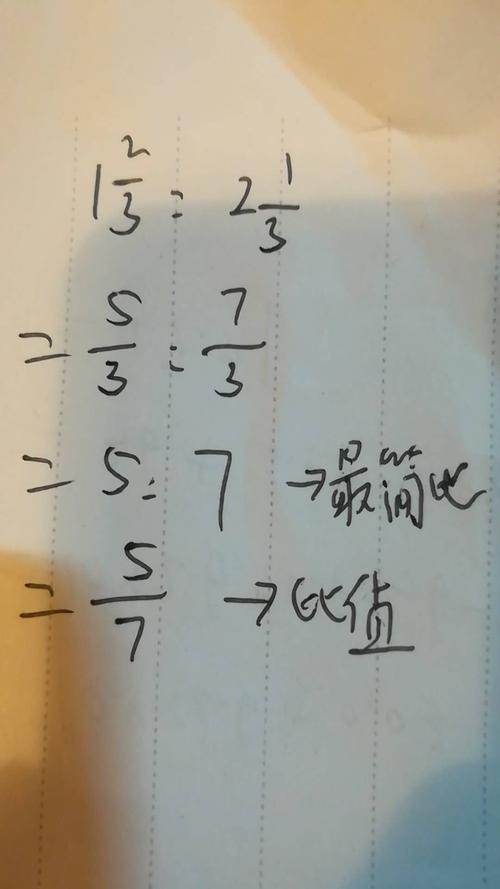 1 2/3 : 2 1/3
= 5/3 : 7/3
= 5 : 7 → 最简比
= 5/7 → 比值